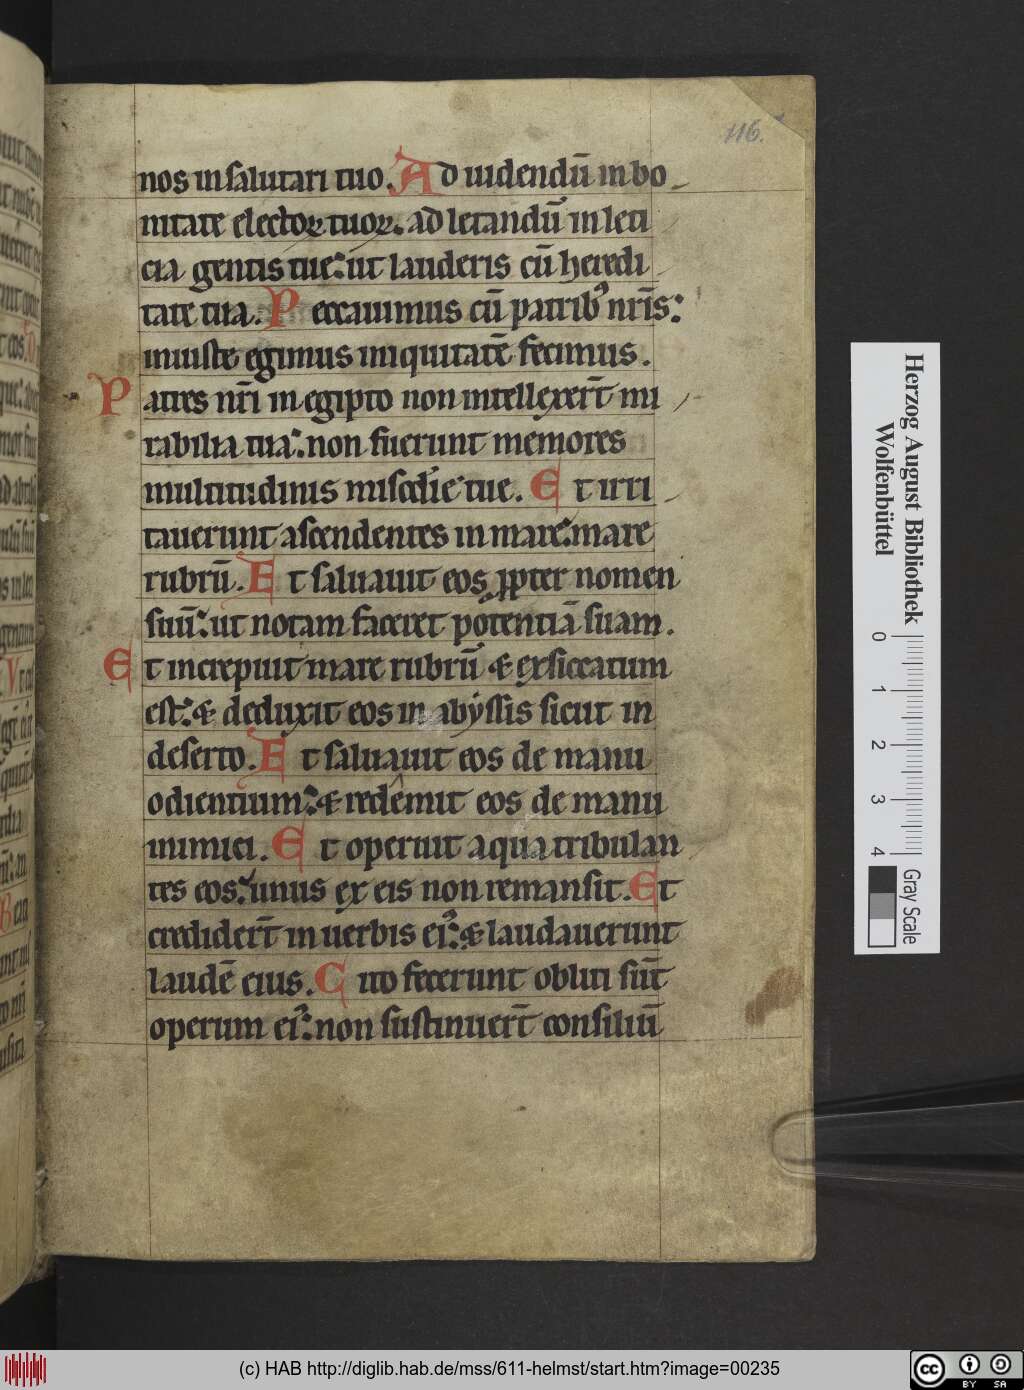 116.
nos in salutari tuo. Ad uidendū in bo
nitate electoꝝ tuoꝝ. ad letandū in leti
cia gentis tue: ut lauderis cū heredi
tate tua. Peccauimus cū patribꝰ nr̄is:
iniuste egimus iniquitatē fecimus.
Patres nr̄i in egipto non intellexer̄t mi
rabilia tua: non fuerunt memores
multitudinis mis͛cdie tue. Et irri
tauerunt ascendentes in mare: mare
rubrū. Et saluauit eos ꝓpter nomen
suū: ut notam faceret potentiā suam.
Et increpuit mare rubrū & exsiccatum
est: & deduxit eos in abẏssis sicut in
deserto. Et saluauit eos de manu
odientium: & redemit eos de manu
inimici. Et operuit aqua tribulan
tes eos: unus ex eis non remansit. Et
credider̄t in uerbis eiꝰ: & laudauerunt
laudē eius. Cito fecerunt obliti sūt
operum eiꝰ: non sustinuer̄t consiliū
Herzog August Bibliothek
Wolfenbüttel
0 1 2 3 4
Gray Scale
(c) HAB http://diglib.hab.de/mss/611-helmst/start.htm?image=00235
cc BY SA